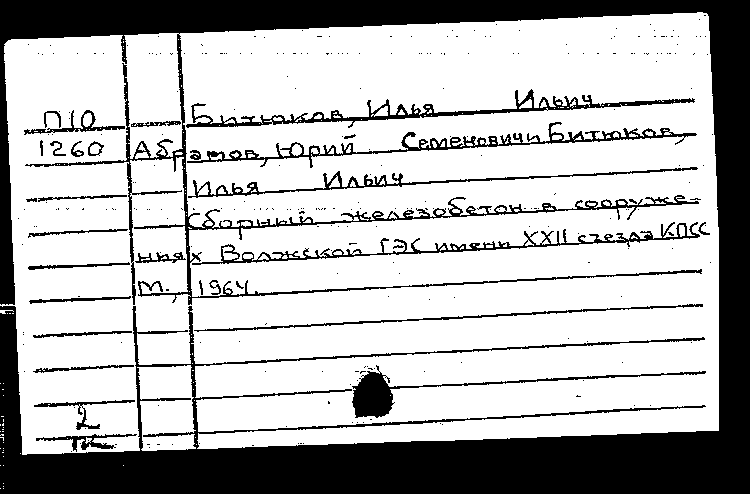 П10 Битюков, Илья Ильич
1260 Абрамов, Юрий Семенович и Битюков,
Илья Ильич
Сборный железобетон в сооруже-
ниях Волжской ГЭС имени XXII съезда КПСС
М., 1964.
2